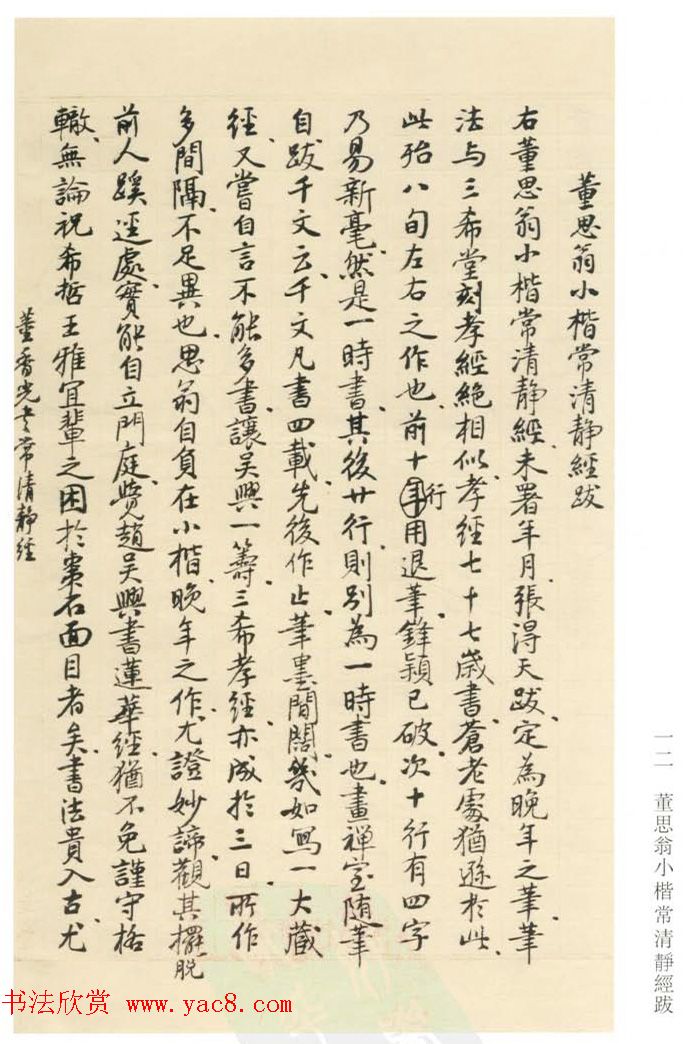 董思翁小楷常清靜經跋
右董思翁小楷常清靜經未署年月張得天跋定為晚年之筆筆
法与三希堂刻孝經絕相似孝經七十七歲書蒼老處猶遜於此
此殆八旬左右之作也前十年行用退筆鋒穎已破次十行有四字
乃易新毫然是一時書其後廿行則別為一時書也畫禪室随筆
自跋千文云千文凡書四載先後作止筆墨間闊幾如寫一大藏
經又嘗自言不能多書讓吳興一籌三希孝經亦成於三日所作
多間隔不足異也思翁自負在小楷晚年之作尤證妙諦觀其擺脫
前人蹊逕處實能自立門庭覺趙吳興書蓮華經猶不免謹守格
轍無論祝希哲王雅宜輩之困於棗石面目者矣書法貴入古尤
董香光書常清靜經
一二 董思翁小楷常清靜經跋
书法欣赏 www.yac8.com